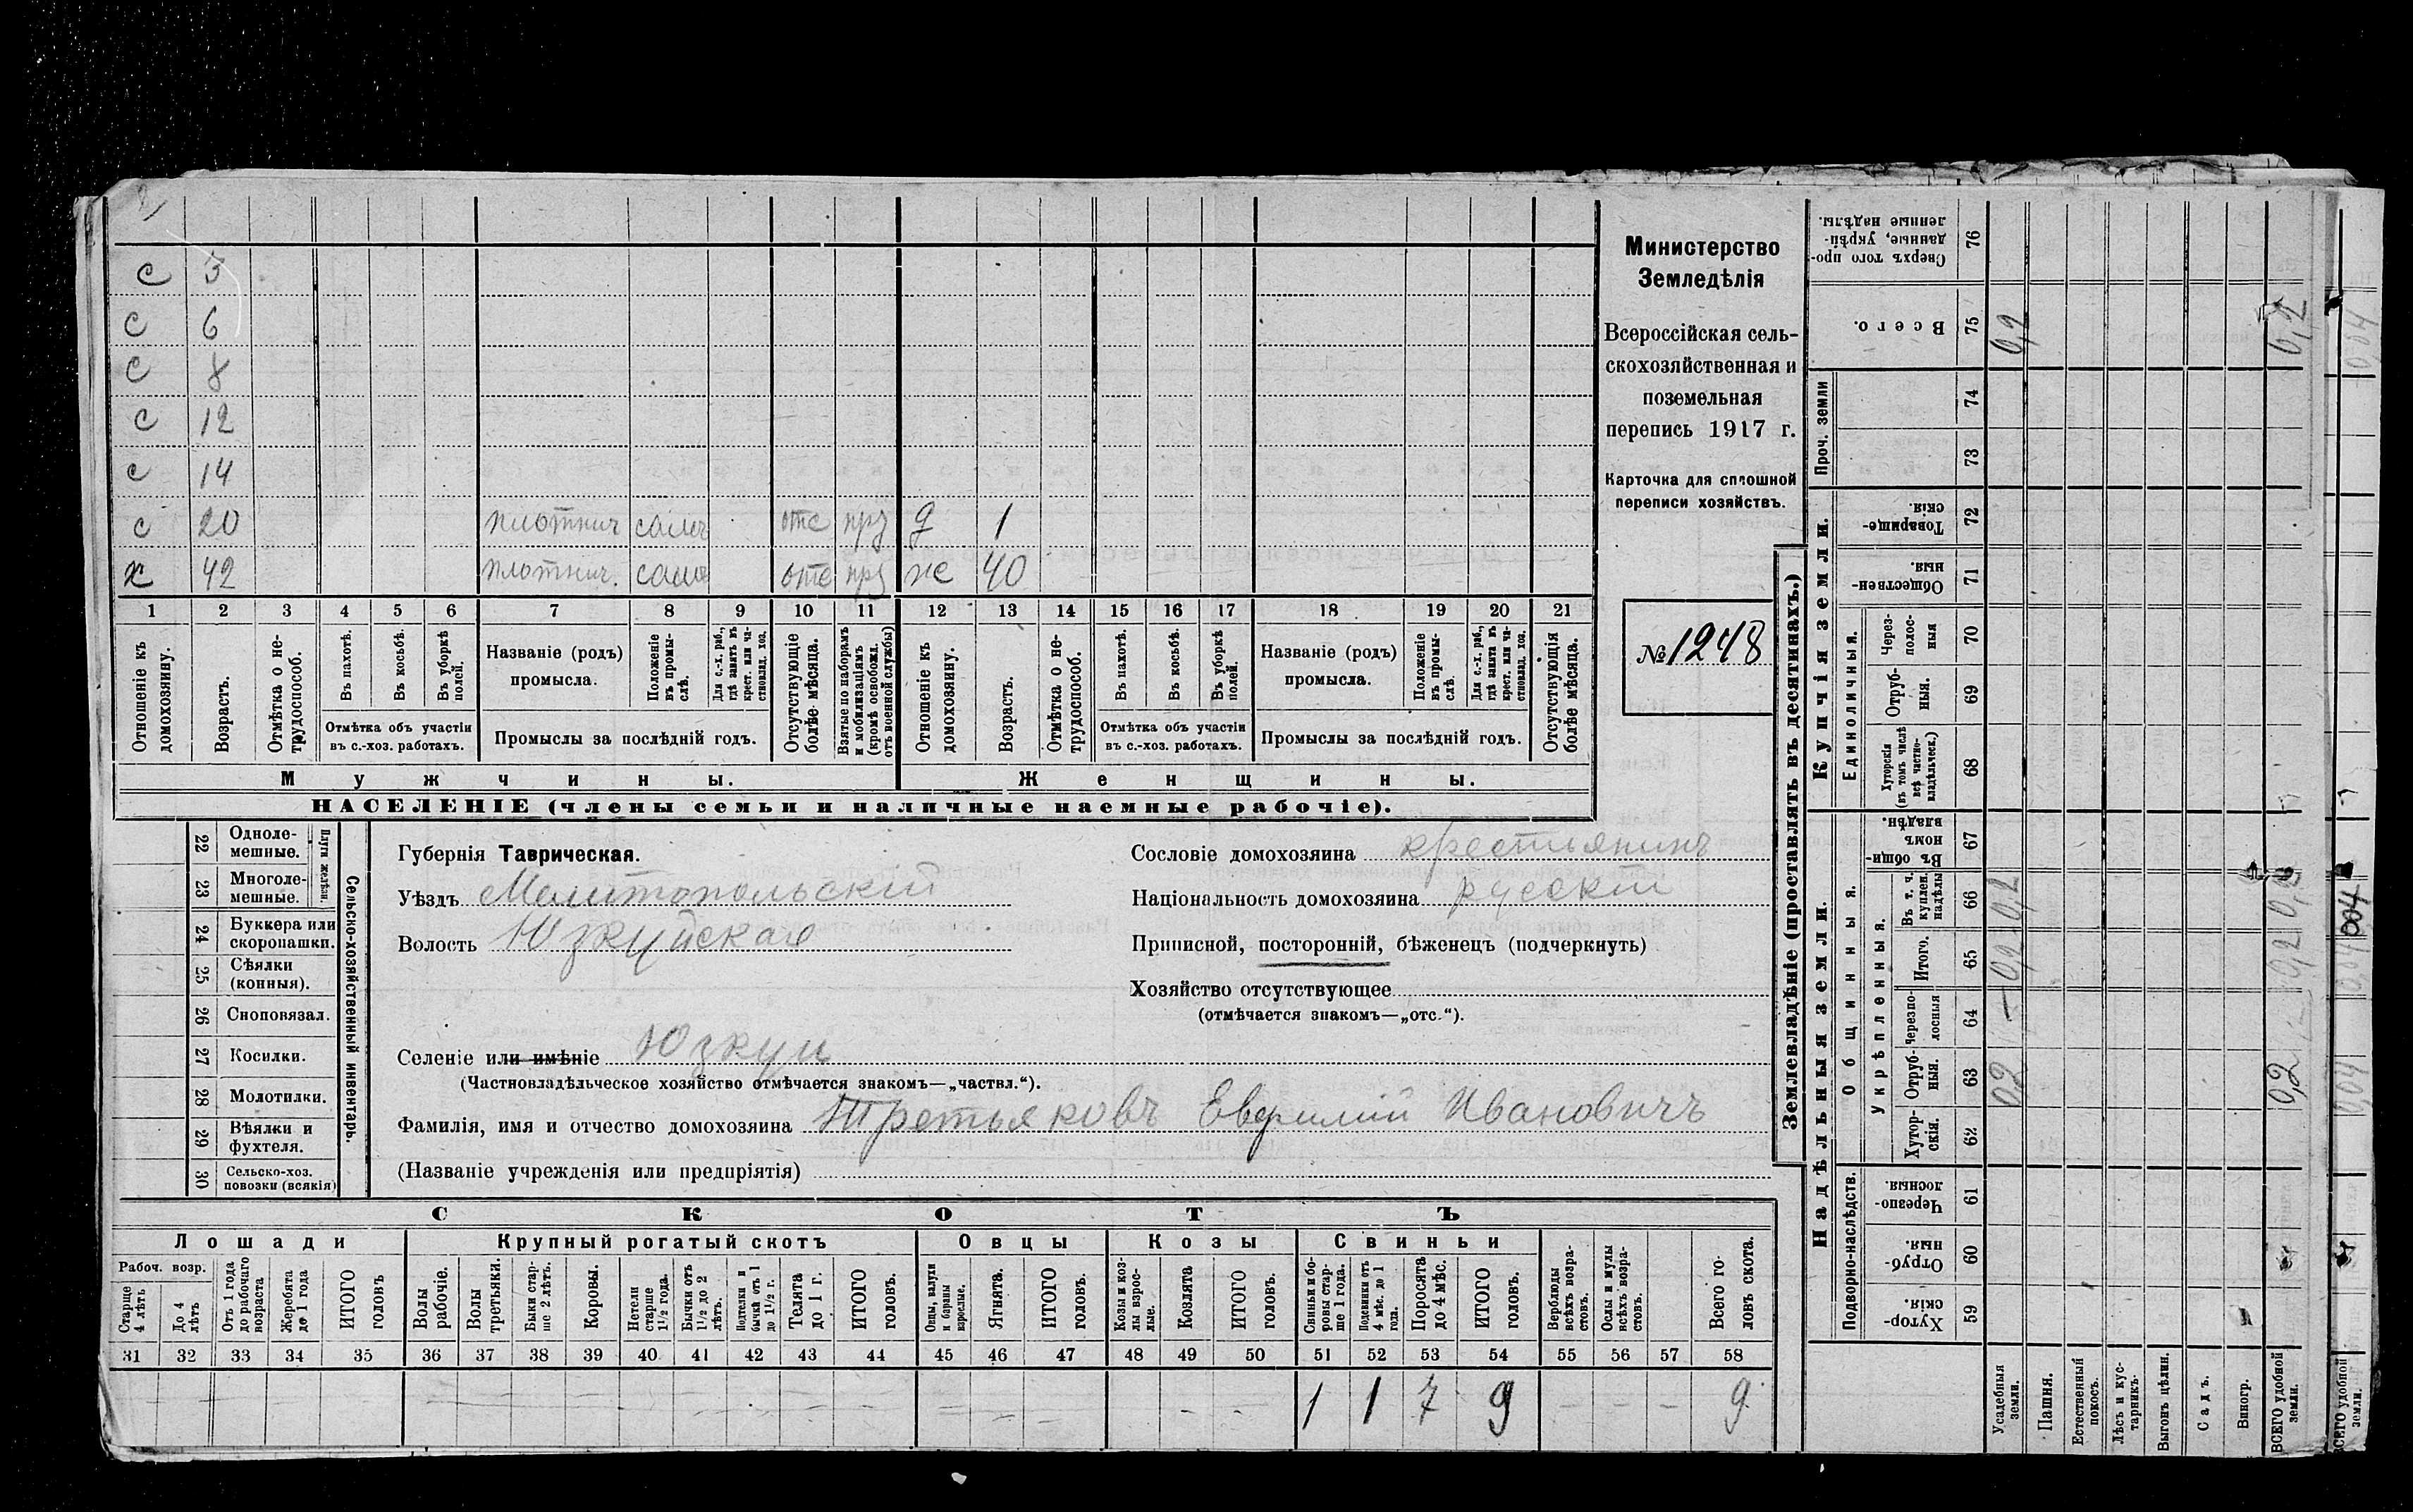 с 5
с 6
с 8
с 12
с 14
с 20 плотнич самъ отс прз д 1
х 42 плотнич. самъ отс прз ж 40
1 2 3 4 5 6 7 8 9 10 11 12 13 14 15 16 17 18 19 20 21
Отношеніе къ домохозяину.
Возрастъ.
Отмѣтка о нетрудоспособ.
Въ пахотѣ.
Въ косьбѣ.
Въ уборкѣ полей.
Отмѣтка объ участіи
въ с.-хоз. работахъ.
Названіе (родъ)
промысла.
Положеніе въ промыслѣ.
Для с.-х. раб., гдѣ занятъ въ крест. или частновлад. хоз.
Промыслы за послѣдній годъ.
Отсутствующіе болѣе мѣсяца.
Взятые по наборамъ и мобилизаціямъ (кромѣ освобожд. отъ военной службы)
Отношеніе къ домохозяину.
Возрастъ.
Отмѣтка о нетрудоспособ.
Въ пахотѣ.
Въ косьбѣ.
Въ уборкѣ полей.
Отмѣтка объ участіи
въ с.-хоз. работахъ.
Названіе (родъ)
промысла.
Положеніе въ промыслѣ.
Для с.-х. раб., гдѣ занята въ крест. или частновлад. хоз.
Промыслы за послѣдній годъ.
Отсутствующія болѣе мѣсяца.
Мужчины.
Женщины.
НАСЕЛЕНІЕ (члены семьи и наличные наемные рабочіе).
Министерство
Земледѣлія
Всероссійская сель-
скохозяйственная и
поземельная
перепись 1917 г.
Карточка для сплошной
переписи хозяйствъ.
№ 1248
22 Одноле-
мешные.
23 Многоле-
мешные.
Плуги желѣзн.
24 Буккера или
скоропашки.
25 Сѣялки
(конныя).
26 Сноповязал.
27 Косилки.
28 Молотилки.
29 Вѣялки и
фухтеля.
30 Сельско-хоз.
повозки (всякія)
Сельско-хозяйственный инвентарь.
Губернія Таврическая.
Уѣздъ Мелитопольскій
Волость Юзкуйская
Сословіе домохозяина крестьянинъ
Національность домохозяина русскій
Приписной, посторонній, бѣженецъ (подчеркнуть)
Хозяйство отсутствующее
(отмѣчается знакомъ—„отс.“).
Селеніе или имѣніе Юзкуи
(Частновладѣльческое хозяйство отмѣчается знакомъ—„частвл.“).
Фамилія, имя и отчество домохозяина Третьяковъ Евфимій Ивановичъ
(Названіе учрежденія или предпріятія)
СКОТЪ
Лошади
Крупный рогатый скотъ
Овцы
Козы
Свиньи
Рабоч. возр.
Старще 4 лѣтъ
До 4 лѣтъ
Отъ 1 года до рабочаго возраста
Жеребята до 1 года
ИТОГО головъ
Волы рабочіе.
Волы третьяки.
Быки старше 2 лѣтъ.
Коровы.
Нетели старше 1½ года.
Бычки отъ 1½ до 2 лѣтъ.
Подтелки и бычки отъ 1 до 1½ г.
Телята до 1 г.
ИТОГО головъ.
Овцы, валухи и бараны взрослые.
Ягнята.
ИТОГО головъ.
Козы и козлы взрослые.
Козлята
ИТОГО головъ.
Свиньи и боровы старше 1 года.
Подсвинки отъ 4 мѣс. до 1 года.
Поросята до 4 мѣс.
ИТОГО головъ.
Верблюды всѣхъ возрастовъ.
Ослы и мулы всѣхъ возрастовъ.
Всего головъ скота.
31 32 33 34 35 36 37 38 39 40 41 42 43 44 45 46 47 48 49 50 51 52 53 54 55 56 57 58
1 1 7 9 – – – 9
Землевладѣніе (проставлять въ десятинахъ.)
Надѣльныя земли.
Купчія земли.
Проч. земли
Подворно-наслѣдств.
Общинныя.
Укрѣпленныя.
Единоличныя.
Сверхъ того проданные, укрѣпленные надѣлы. 76
Всего. 75
74
73
Товарищескія. 72
Общественныя. 71
Черезполосныя 70
Отрубныя. 69
Хуторскія (въ томъ числѣ всѣ частновладѣльческ.) 68
Въ общинномъ владѣн. 67
Въ т. ч. куплен. надѣлы 66
Итого. 65
Черезполосныя 64
Отрубныя. 63
Хуторскія. 62
Черезполосныя. 61
Отрубныя. 60
Хуторскія. 59
Усадебныя земли.
0,2 – 0,2 0,2 0,2
Пашня.
Естественный покосъ.
Лѣсъ и кустарникъ.
Выгонъ цѣлин.
Садъ.
Виногр.
ВСЕГО удобной земли.
0,2 0,2 0,2 0,2
ВСЕГО удобной земли.
0,04 0,04 004 0,04